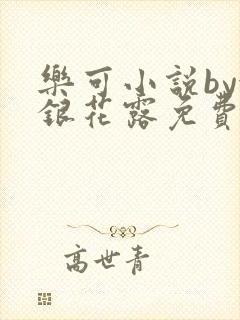 樂可小說by
銀花露免費
高世青